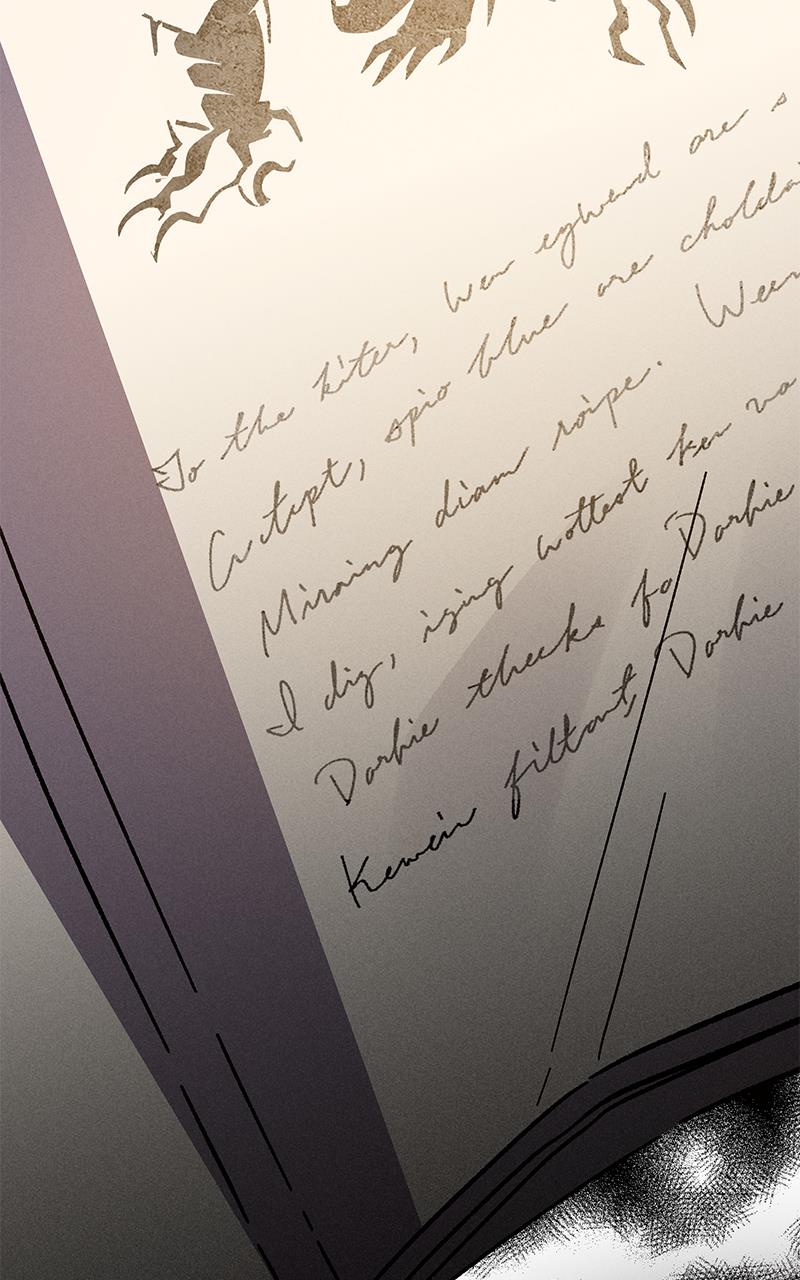 To the kiter, Wen egwend are s
Autept, spio blue are cholda
Mirning diam roipe. Ween
I dig, izing wottest ken va
Dorhie theeks fo Dorhie
Kewein filtont, Dorhie